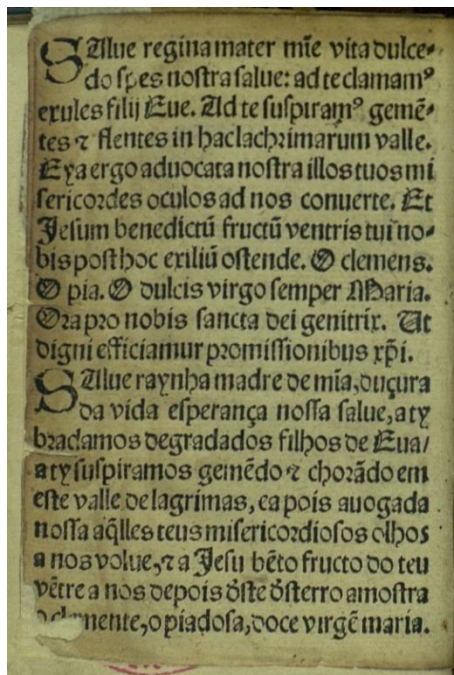 SAlue regina mater mīe vita dulce⸗
do spes nostra salue: ad te clamamꝰ
exules filij Eue. Ad te suspiramꝰ gemē⸗
tes ⁊ flentes in hac lachrimarum valle.
Eya ergo aduocata nostra illos tuos mi
sericordes oculos ad nos conuerte. Et
Jesum benedictū fructū ventris tui no⸗
bis post hoc exiliū ostende. O clemens.
O pia. O dulcis virgo semper Maria.
Ora pro nobis sancta dei genitrix. Ut
digni efficiamur promissionibus xp̄i.
SAlue raynha madre de mīa, duçura
da vida esperança nossa salue, a ty
bradamos degradados filhos de Eua/
a ty suspiramos gemēdo ⁊ chorādo em
este valle de lagrimas, ea pois auogada
nossa aq̄lles teus misericordiosos olhos
a nos volue, ⁊ a Jesu bēto fructo do teu
vētre a nos depois d̄ste d̄sterro amostra
o clemente, o piadosa, doce virgē maria.